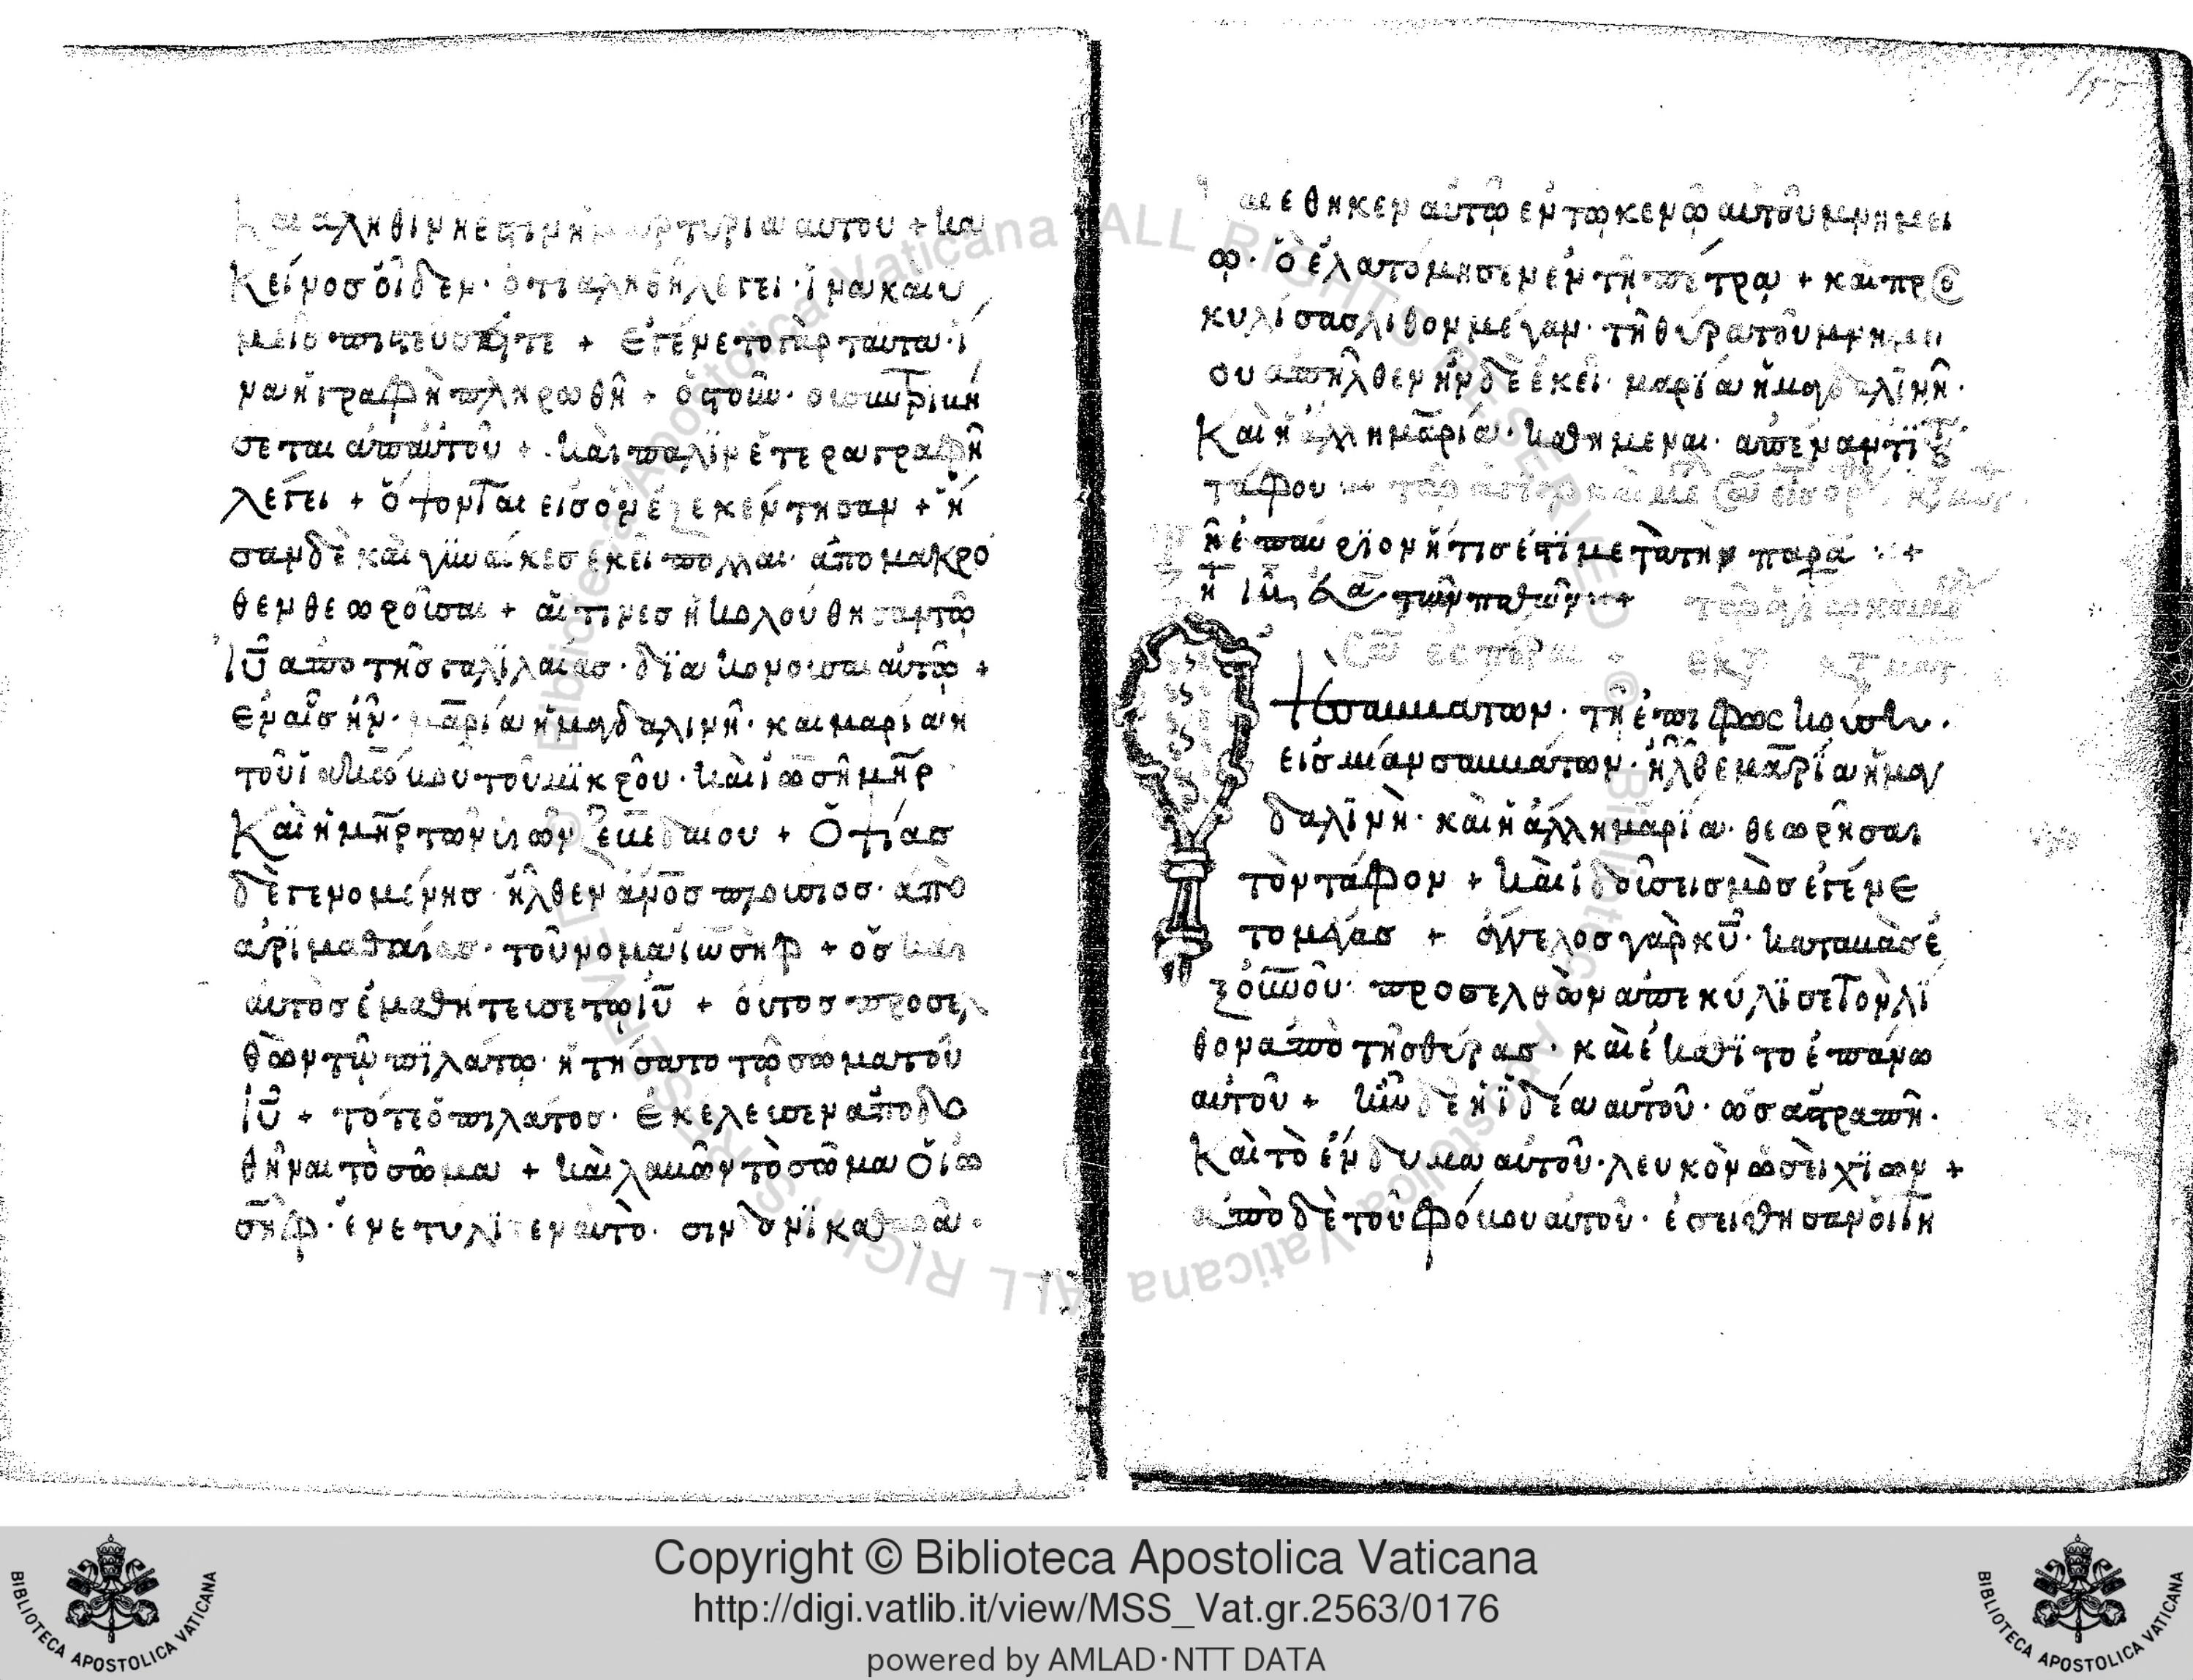 Και αληθινη εστιν η μαρτυρια αυτου + κα
κείνοσ οἶδεν· ὅτι αληθῆ λέγει· ἵνα καὶ υ
μεῖσ πιστεύσητε + Εγένετο γὰρ ταῦτα· ἵ
να ἡ γραφὴ πληρωθῆ + ὀστοῦν· οὐ συντριβή
σεται ἀπ αὐτοῦ + καὶ παλϊν ἑτέρα γραφὴ
λέγει + ὄψονται εισ ὃν ἐξεκέντησαν + ἦ
σαν δὲ καὶ γϋναίκεσ εκεῖ πολλαι· ἀπο μακρό
θεν θεωροῦσαι + αἵ τινεσ ἠκολούθησαν τῶ
ἰῦ απο τῆσ γαλϊλαίασ· δϊακονουσαι αὐτῶ +
Εν αἷσ ἦν· μαρία ἡ μαγδαλινῆ· και μαρία ἡ
τοῦ ϊακώβου τοῦ μϊκροῦ· καὶ ϊωσῆ μῆρ
Καὶ ἡ μῆρ τῶν υἱῶν ζεβεδαίου + Ὀψίασ
δὲ γενομένησ· ἦλθεν ἀνοσ πλούσιοσ· ἀπὸ
αρϊμαθαίασ· τοὔνομα ἰωσὴφ + ὃσ καὶ
αυτὸσ ἐμαθήτευσε τῶ ἰῦ + οὗτοσ προσελ
θὼν τῶ πϊλάτω· ἠτήσατο τὸ σῶμα τοῦ
ἰῦ + τότε ὁ πιλάτοσ· ἐκέλευσεν ἀποδο
θῆναι τὸ σῶμα + καὶ λαβὼν τὸ σῶμα ὁ ἰω
σὴφ· ἐνετύλϊξεν αὐτὸ· σινδόνϊ καθαρᾶ·
Και έθηκεν αὐτῶ εν τῶ κενῶ αὐτοῦ μνημεί
ω· ὃ ἐλατόμησεν ἐν τῆ πέτρα + καὶ προσ
κυλίσασ λίθον μέγαν· τῆ θύρα τοῦ μνημεί
ου απῆλθεν ἦν δὲ ἐκεῖ· μαρία ἡ μαγδαλϊνῆ·
Καὶ ἡ ἄλλη μαρία· καθήμεναι· απέναντϊ τοῦ
τάφου
ῆ ἐπαύριον ἥτισ ἐστϊ μετὰ τὴν παρα +
των παθῶν +
Οψὲ σαββάτων· τῆ ἐπιφωσκούση·
εισ μίαν σαββάτων· ἦλθε μαρία ἡ μαγ
δαλϊνὴ· καὶ ἡ ἄλλη μαρία· θεωρῆσαι
τὸν τάφον + καὶ ἰδοὺ σεισμὸσ εγένε
το μέγασ + ἄγγελοσ γαρ κῦ· καταβὰσ ἐ
ξ οὐνοῦ· προσελθὼν απεκύλϊσε τὸν λϊ
θον απὸ τῆσ θύρασ· καὶ ἐκάθϊτο ἐπάνω
αὐτοῦ + ἦν δὲ ἡ ἰδέα αυτοῦ· ὡσ αστραπὴ·
Καὶ τὸ ἔνδυμα αὐτοῦ· λευκὸν ὡσεὶ χϊων +
ἀπὸ δὲ τοῦ φόβου αὐτοῦ· ἐσείσθησαν οἱ τη
Copyright © Biblioteca Apostolica Vaticana
http://digi.vatlib.it/view/MSS_Vat.gr.2563/0176
powered by AMLAD·NTT DATA
BIBLIOTECA APOSTOLICA VATICANA
BIBLIOTECA APOSTOLICA VATICANA